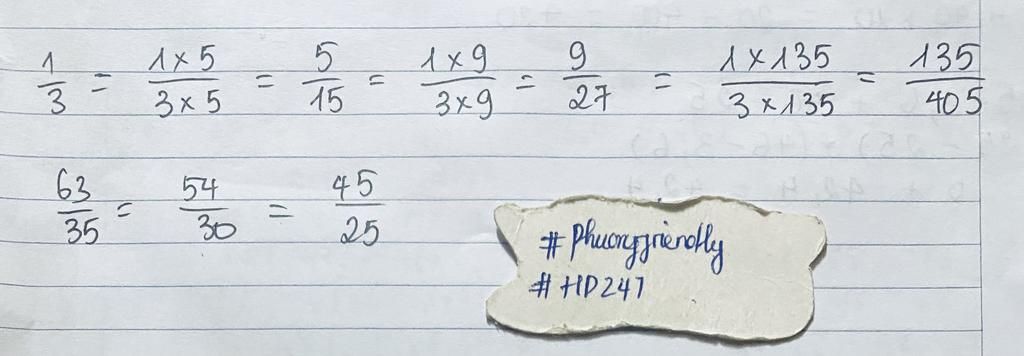 1/3 = 1 x 5/3 x 5 = 5/15 = 1 x 9/3 x 9 = 9/27 = 1 x 135/3 x 135 = 135/405
63/35 = 54/30 = 45/25
# Phuongfriendly
# HD247